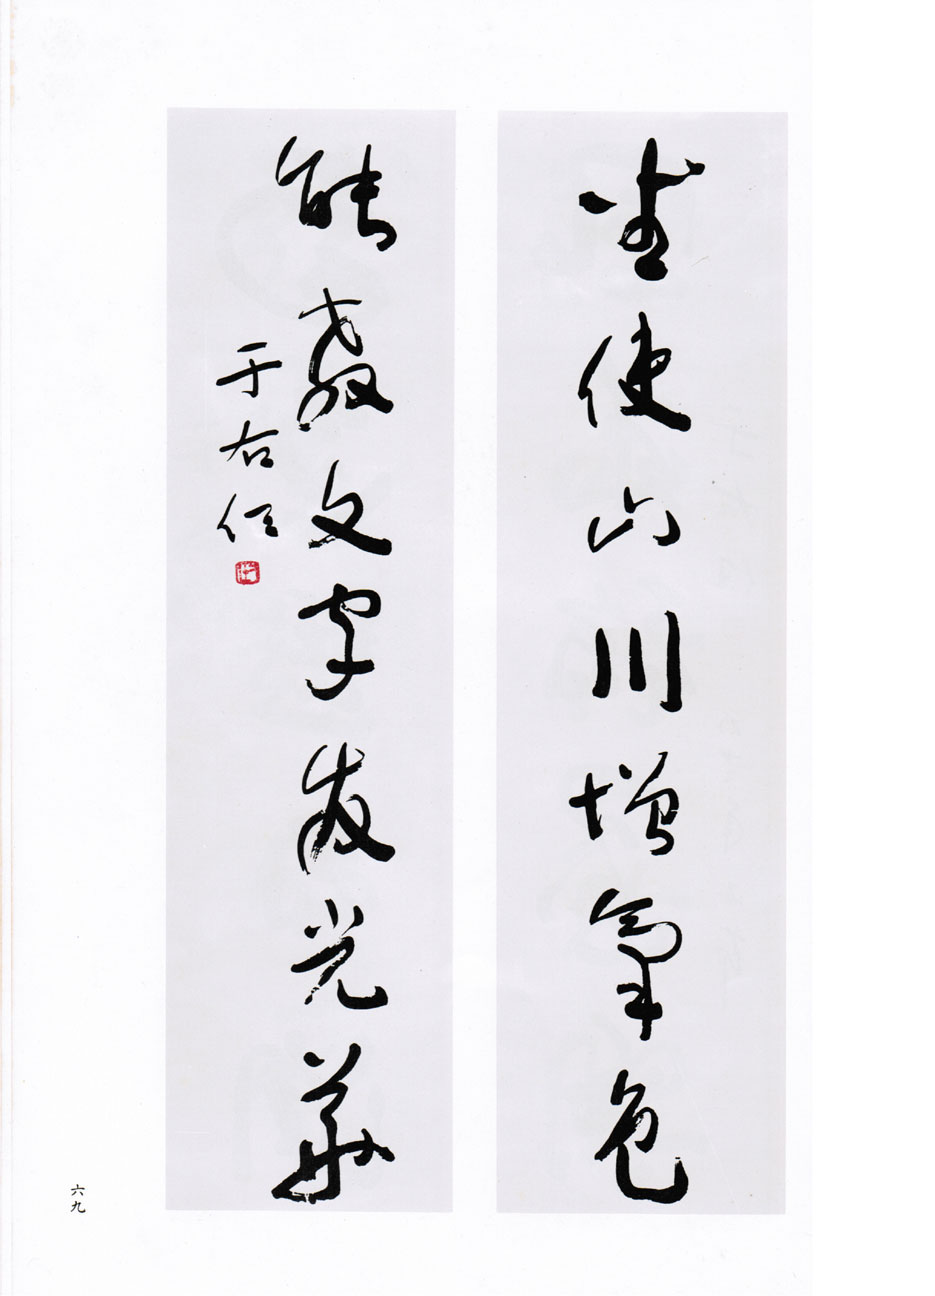 坐使山川增氣色
能教文字發光華
于右任
六九